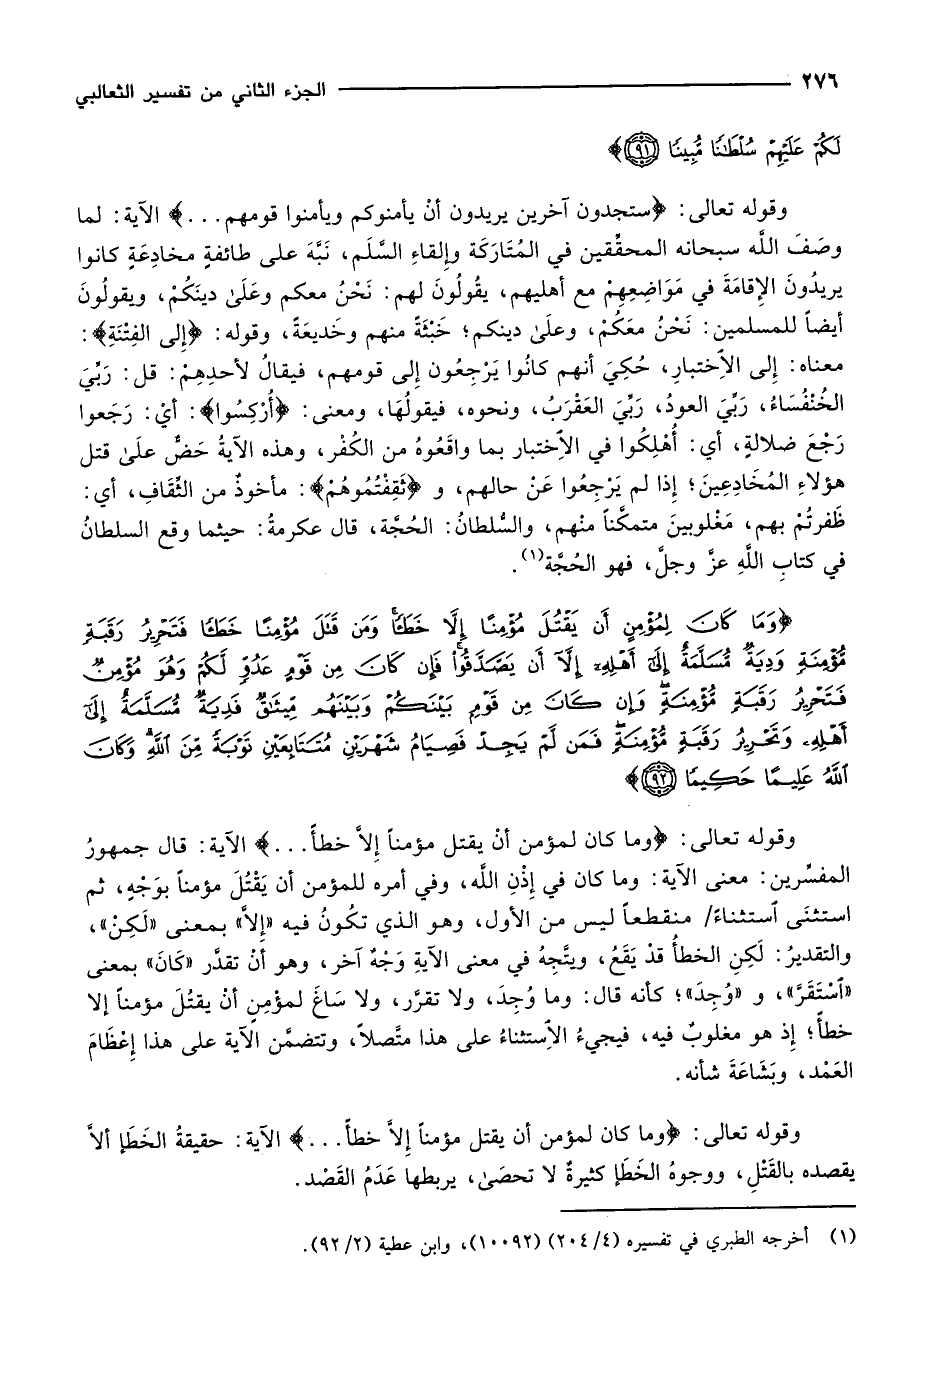 ٢٧٦ الجزء الثاني من تفسير الثعالبي
لَكُمْ عَلَيْهِمْ سُلْطَانًا مُّبِينًا ﴿٩١﴾﴾
وقوله تعالى: ﴿ستجدون آخرين يريدون أنْ يأمنوكم ويأمنوا قومهم...﴾ الآية: لما
وصَفَ اللَّه سبحانه المحقِّقين في المُتَارَكَة وإِلقاءِ السَّلَم، نَبَّهَ على طائفةٍ مخادِعَةٍ كانوا
يريدُونَ الإِقامَةَ في مَوَاضِعِهِمْ مع أهليهم، يقُولُونَ لهم: نَحْنُ معكم وعَلَىٰ دينِكُمْ، ويقولُونَ
أيضاً للمسلمين: نَحْنُ معَكُمْ، وعلَىٰ دينكم؛ خَبْثَةً منهم وخَديعَةً، وقوله: ﴿إِلى الفِتْنَةِ﴾:
معناه: إِلى الاِّختبارِ، حُكِيَ أنهم كانُوا يَرْجِعُون إِلى قومهم، فيقالُ لأحدِهِمْ: قل: رَبِّيَ
الخُنْفُسَاءُ، رَبِّيَ العودُ، رَبِّيَ العَقْرَبُ، ونحوه، فيقولُهَا، ومعنى: ﴿أُرْكِسُوا﴾: أيْ: رَجَعوا
رَجْعَ ضلالةٍ، أي: أُهْلِكُوا في الاِّختبار بما واقَعُوهُ من الكُفْر، وهذه الآيةُ حَضٌّ علَىٰ قتل
هؤلاءِ المُخَادِعِينَ؛ إِذا لم يَرْجِعُوا عَنْ حالهم، و ﴿ثَقِفْتُمُوهُمْ﴾: مأخوذٌ من الثِّقَافِ، أي:
ظَفرتُمْ بهم، مَغْلوبينَ متمكَّناً منْهم، والسُّلطانُ: الحُجَّة، قال عكرمةُ: حيثما وقع السلطانُ
في كتابِ اللَّهِ عزَّ وجلَّ، فهو الحُجَّة(١).
﴿وَمَا كَانَ لِمُؤْمِنٍ أَن يَقْتُلَ مُؤْمِنًا إِلَّا خَطَئًا وَمَن قَتَلَ مُؤْمِنًا خَطَئًا فَتَحْرِيرُ رَقَبَةٍ
مُّؤْمِنَةٍ وَدِيَةٌ مُّسَلَّمَةٌ إِلَىٰ أَهْلِهِۦ إِلَّا أَن يَصَّدَّقُوا فَإِن كَانَ مِن قَوْمٍ عَدُوٍّ لَّكُمْ وَهُوَ مُؤْمِنٌ
فَتَحْرِيرُ رَقَبَةٍ مُّؤْمِنَةٍ وَإِن كَانَ مِن قَوْمٍ بَيْنَكُمْ وَبَيْنَهُم مِّيثَاقٌ فَدِيَةٌ مُّسَلَّمَةٌ إِلَىٰ
أَهْلِهِۦ وَتَحْرِيرُ رَقَبَةٍ مُّؤْمِنَةٍ فَمَن لَّمْ يَجِدْ فَصِيَامُ شَهْرَيْنِ مُتَتَابِعَيْنِ تَوْبَةً مِّنَ اللَّهِ وَكَانَ
اللَّهُ عَلِيمًا حَكِيمًا ﴿٩٢﴾﴾
وقوله تعالى: ﴿وما كان لمؤمن أنْ يقتل مؤمناً إِلاَّ خطأً...﴾ الآية: قال جمهورُ
المفسِّرين: معنى الآية: وما كان في إِذْنِ اللَّه، وفي أمره للمؤمن أن يَقْتُلَ مؤمناً بوَجْهٍ، ثم
استثنَى ٱستثناءً/ منقطعاً ليس من الأول، وهو الذي تكُونُ فيه «إِلاَّ» بمعنى «لَكِنْ»،
والتقديرُ: لَكِنِ الخطأُ قدْ يَقَعُ، ويتَّجِهُ في معنى الآيةِ وَجْهٌ آخر، وهو أنْ تقدَّر «كَانَ» بمعنى
«ٱسْتَقَرَّ»، و «وُجِدَ»؛ كأنه قال: وما وُجِدَ، ولا تقرَّر، ولا سَاغَ لمؤمِنٍ أنْ يقتُلَ مؤمناً إلا
خطأً؛ إِذ هو مغلوبٌ فيه، فيجيءُ الاِّستثناءُ على هذا متَّصلاً، وتتضمَّن الآية على هذا إِعْظَامَ
العَمْد، وبَشَاعَةَ شأنه.
وقوله تعالى: ﴿وما كان لمؤمن أن يقتل مؤمناً إِلاَّ خطأً...﴾ الآية: حقيقةُ الخَطَإ ألاَّ
يقصده بالقَتْلِ، ووجوهُ الخَطَإِ كثيرةٌ لا تحصَىٰ، يربطها عَدَمُ القَصْد.
(١) أخرجه الطبري في تفسيره (٤/ ٢٠٤) (١٠٠٩٢)، وابن عطية (٢/ ٩٢).